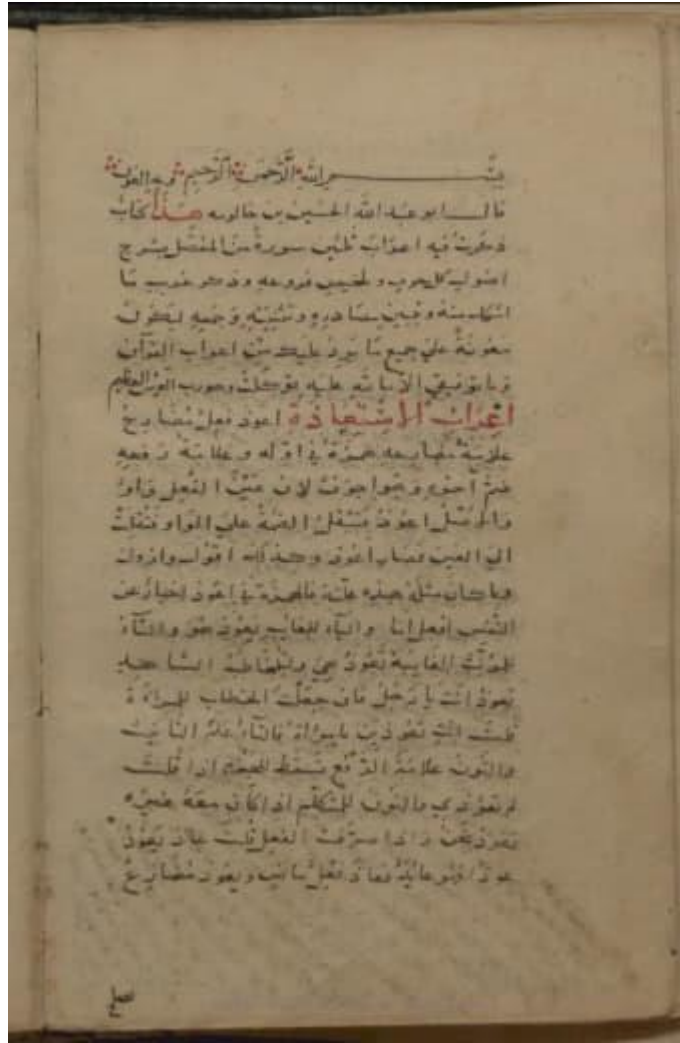 بسم الله الرحمن الرحيم وبه العون
قال ابو عبد الله الحسين بن خالويه هذا كتاب
ذكرت فيه اعراب ثلثين سورة من المفصل بشرح
اصول كل حرف وتلخيص فروعه وذكر غريب ما
اشكل منه وتبيين مصادره وتثنيته وجمعه ليكون
معونة على جميع ما يرد عليك من اعراب القرآن
وما توفيقي الا بالله عليه توكلت وهو رب العرش العظيم
اعراب الاستعاذة اعوذ فعل مضارع
علامة مضارعه همزة في اوله وعلامة رفعه
ضم اخره وهو اجوف لان عين الفعل واو
والاصل اعوذ فتثقل الضمة على الواو فنقلت
الى العين فصار اعوذ وكذلك اقول وازول
وما كان مثله هذه علته فالهمزة في اعوذ اخبار عن
النفس افعل انا والياء للغايب يعوذ هو والتاء
للمؤنث الغايبة تعوذ هي وللمخاطب الشاهد
تعوذ انت يا رجل فان جعلت الخطاب للمراة
قلت انت تعوذين يا امراة فالياء علم التانيث
والنون علامة الرفع تسقط للجزم اذا قلت
لم تعوذي والنون للمتكلم اذا كان معه غيره
نعوذ نحن واذا صرفت الفعل قلت عاذ يعوذ
عوذا فهو عائذ فعاذ فعل ماض ويعوذ مضارع